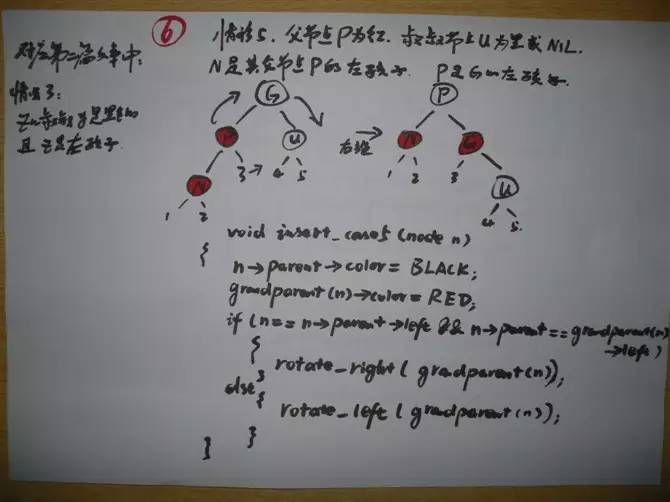 ⑥
情形5. 父节点P为红. 叔叔节点U为黑或NIL.
N是其父节点P的左孩子. P是G的左孩子.
对应第二篇文章中:
情况3:
z的叔叔y是黑色的
且z是左孩子.
G
P U
N 3→ 4 5
1 2
右旋
P
N G
1 2 3 U
4 5
void insert_case5 (node n)
{
n→parent→color = BLACK;
grandparent(n)→color = RED;
if (n == n→parent→left && n→parent == grandparent(n)
→left)
{
rotate_right( gradparent(n));
}
else
{
rotate_left ( gradparent(n));
}
}